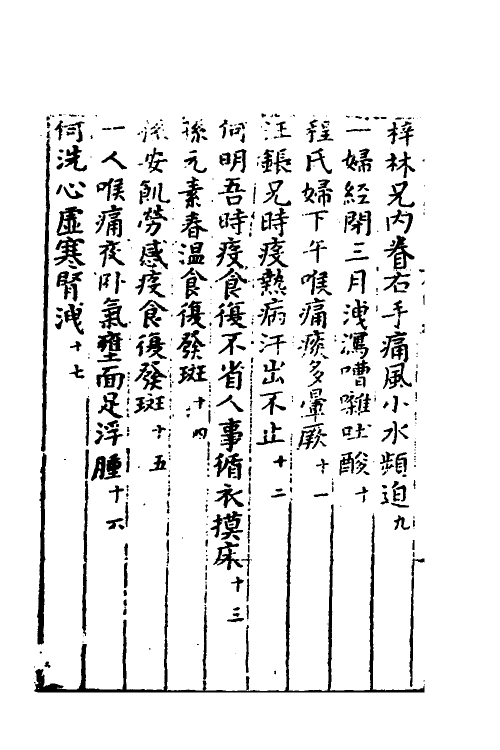 梓林兄內眷右手痛風小水頻迫九
一婦經閉三月洩瀉嘈雜吐酸十
程氏婦下午喉痛痰多暈厥十一
汪鋹兄時疫熱病汗出不止十二
何明吾時疫食復不省人事循衣摸床十三
孫元素春溫食復發斑十四
孫安飢勞感疫食復發斑十五
一人喉痛夜卧氣壅面足浮腫十六
何洗心虛寒腎洩十七